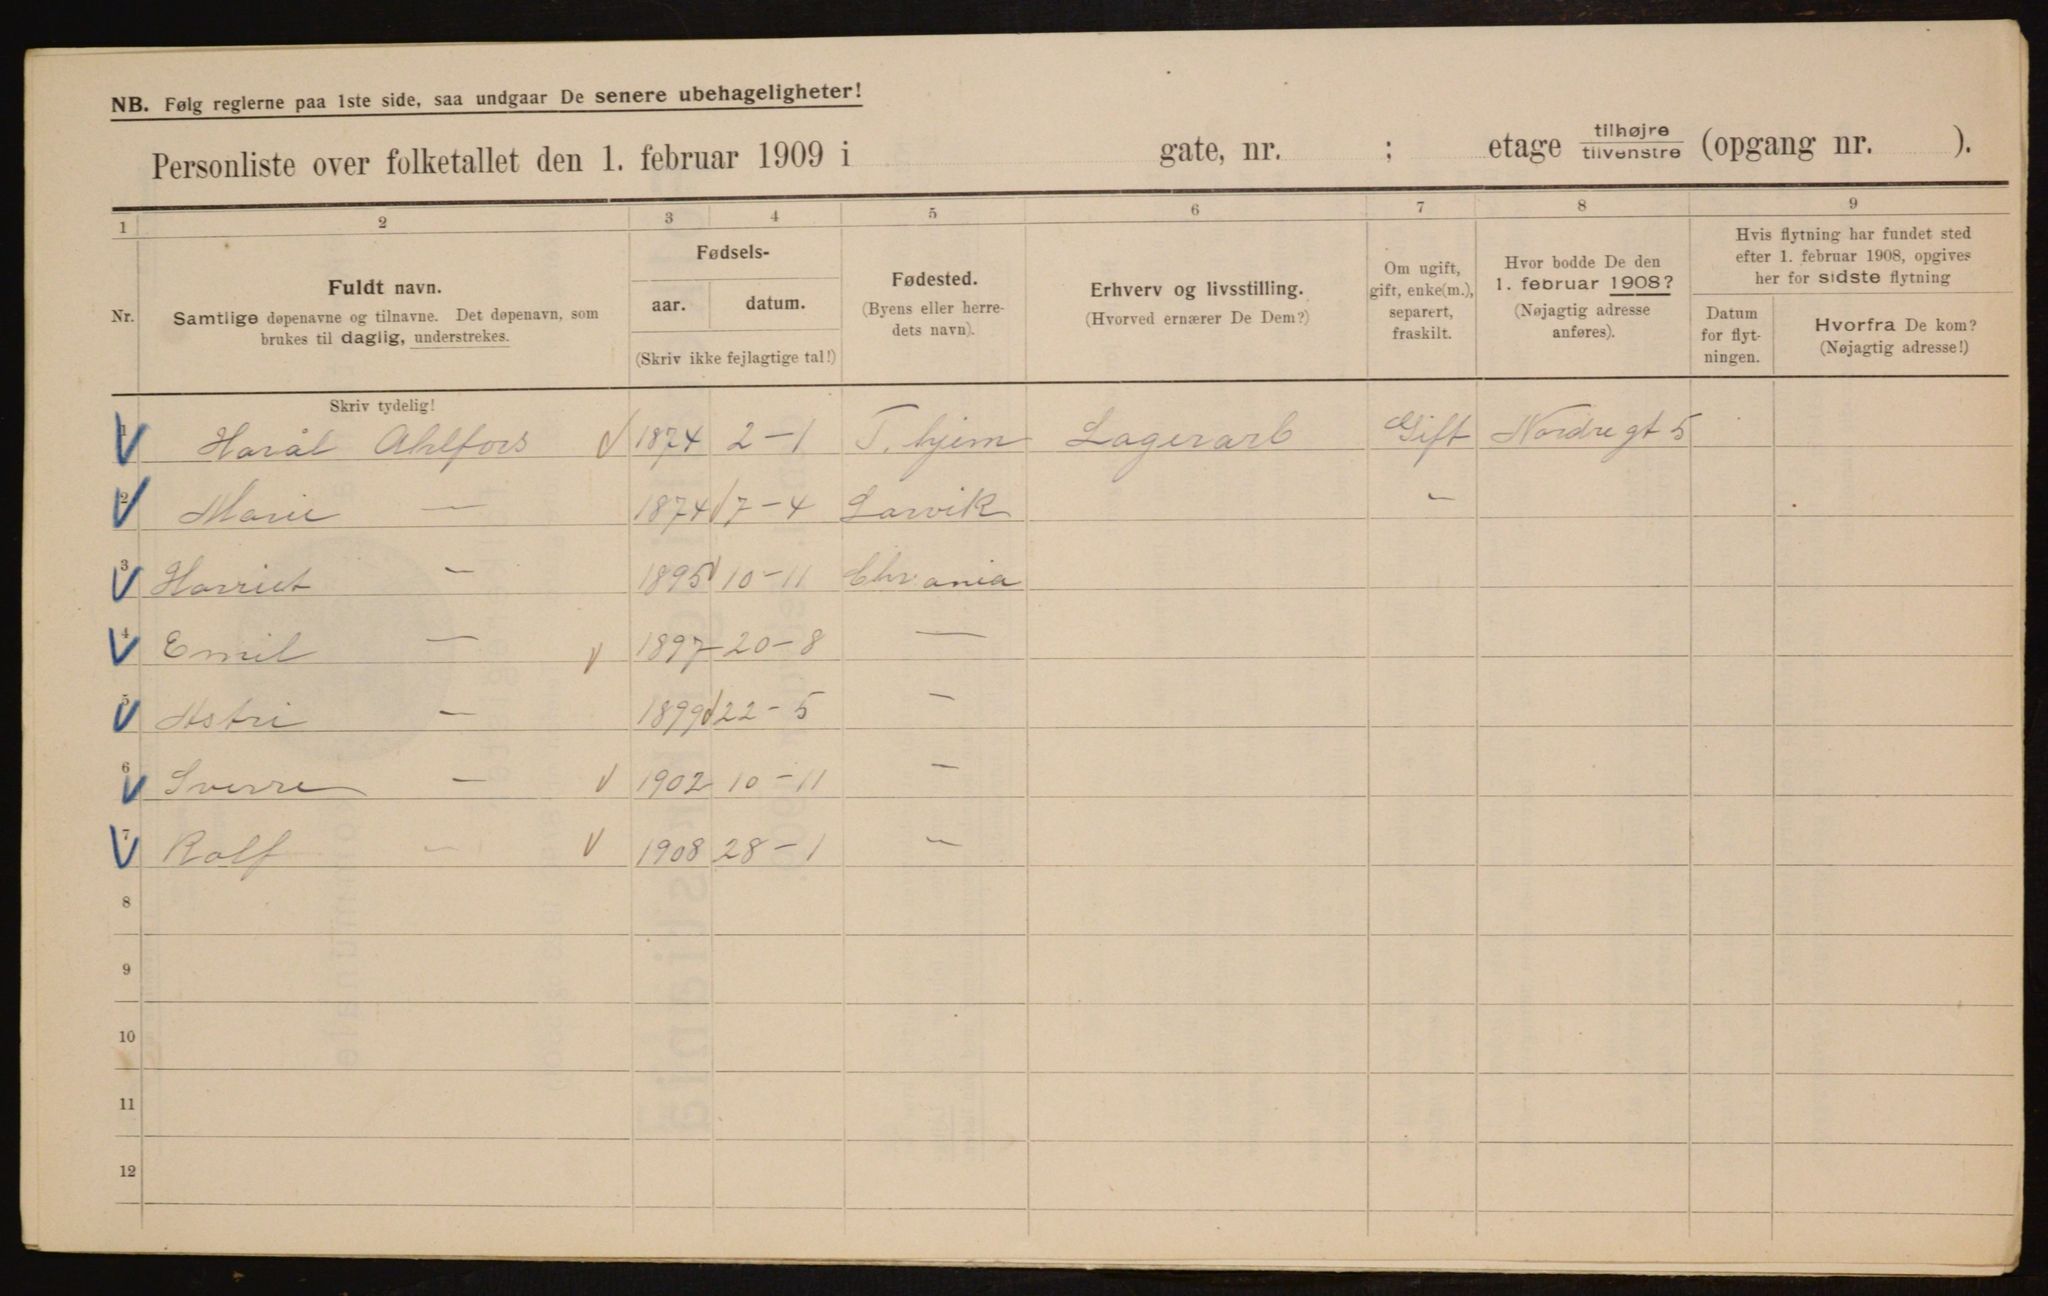 NB. Følg reglerne paa 1ste side, saa undgaar De senere ubehageligheter!
Personliste over folketallet den 1. februar 1909 i gate, nr. ; etage tilhøjre/tilvenstre (opgang nr. ).
1 2 3 4 5 6 7 8 9
Nr.
Fuldt navn.
Samtlige døpenavne og tilnavne. Det døpenavn, som
brukes til daglig, understrekes.
Skriv tydelig!
Fødsels-
aar. datum.
(Skriv ikke fejlagtige tal!)
Fødested.
(Byens eller herre-
dets navn).
Erhverv og livsstilling.
(Hvorved ernærer De Dem?)
Om ugift,
gift, enke(m.),
separert,
fraskilt.
Hvor bodde De den
1. februar 1908?
(Nøjagtig adresse
anføres).
Hvis flytning har fundet sted
efter 1. februar 1908, opgives
her for sidste flytning
Datum
for flyt-
ningen.
Hvorfra De kom?
(Nøjagtig adresse!)
1 Haral Ahlfors 1874 2-1 T.hjem Lagerarb Gift Nordregt 5
2 Marie — 1874 7-4 Larvik —
3 Harriet — 1895 10-11 Chrania
4 Emil — 1897 20-8 —
5 Astri — 1899 22-5 —
6 Sverre — 1902 10-11 —
7 Rolf — 1908 28-1 —
8
9
10
11
12